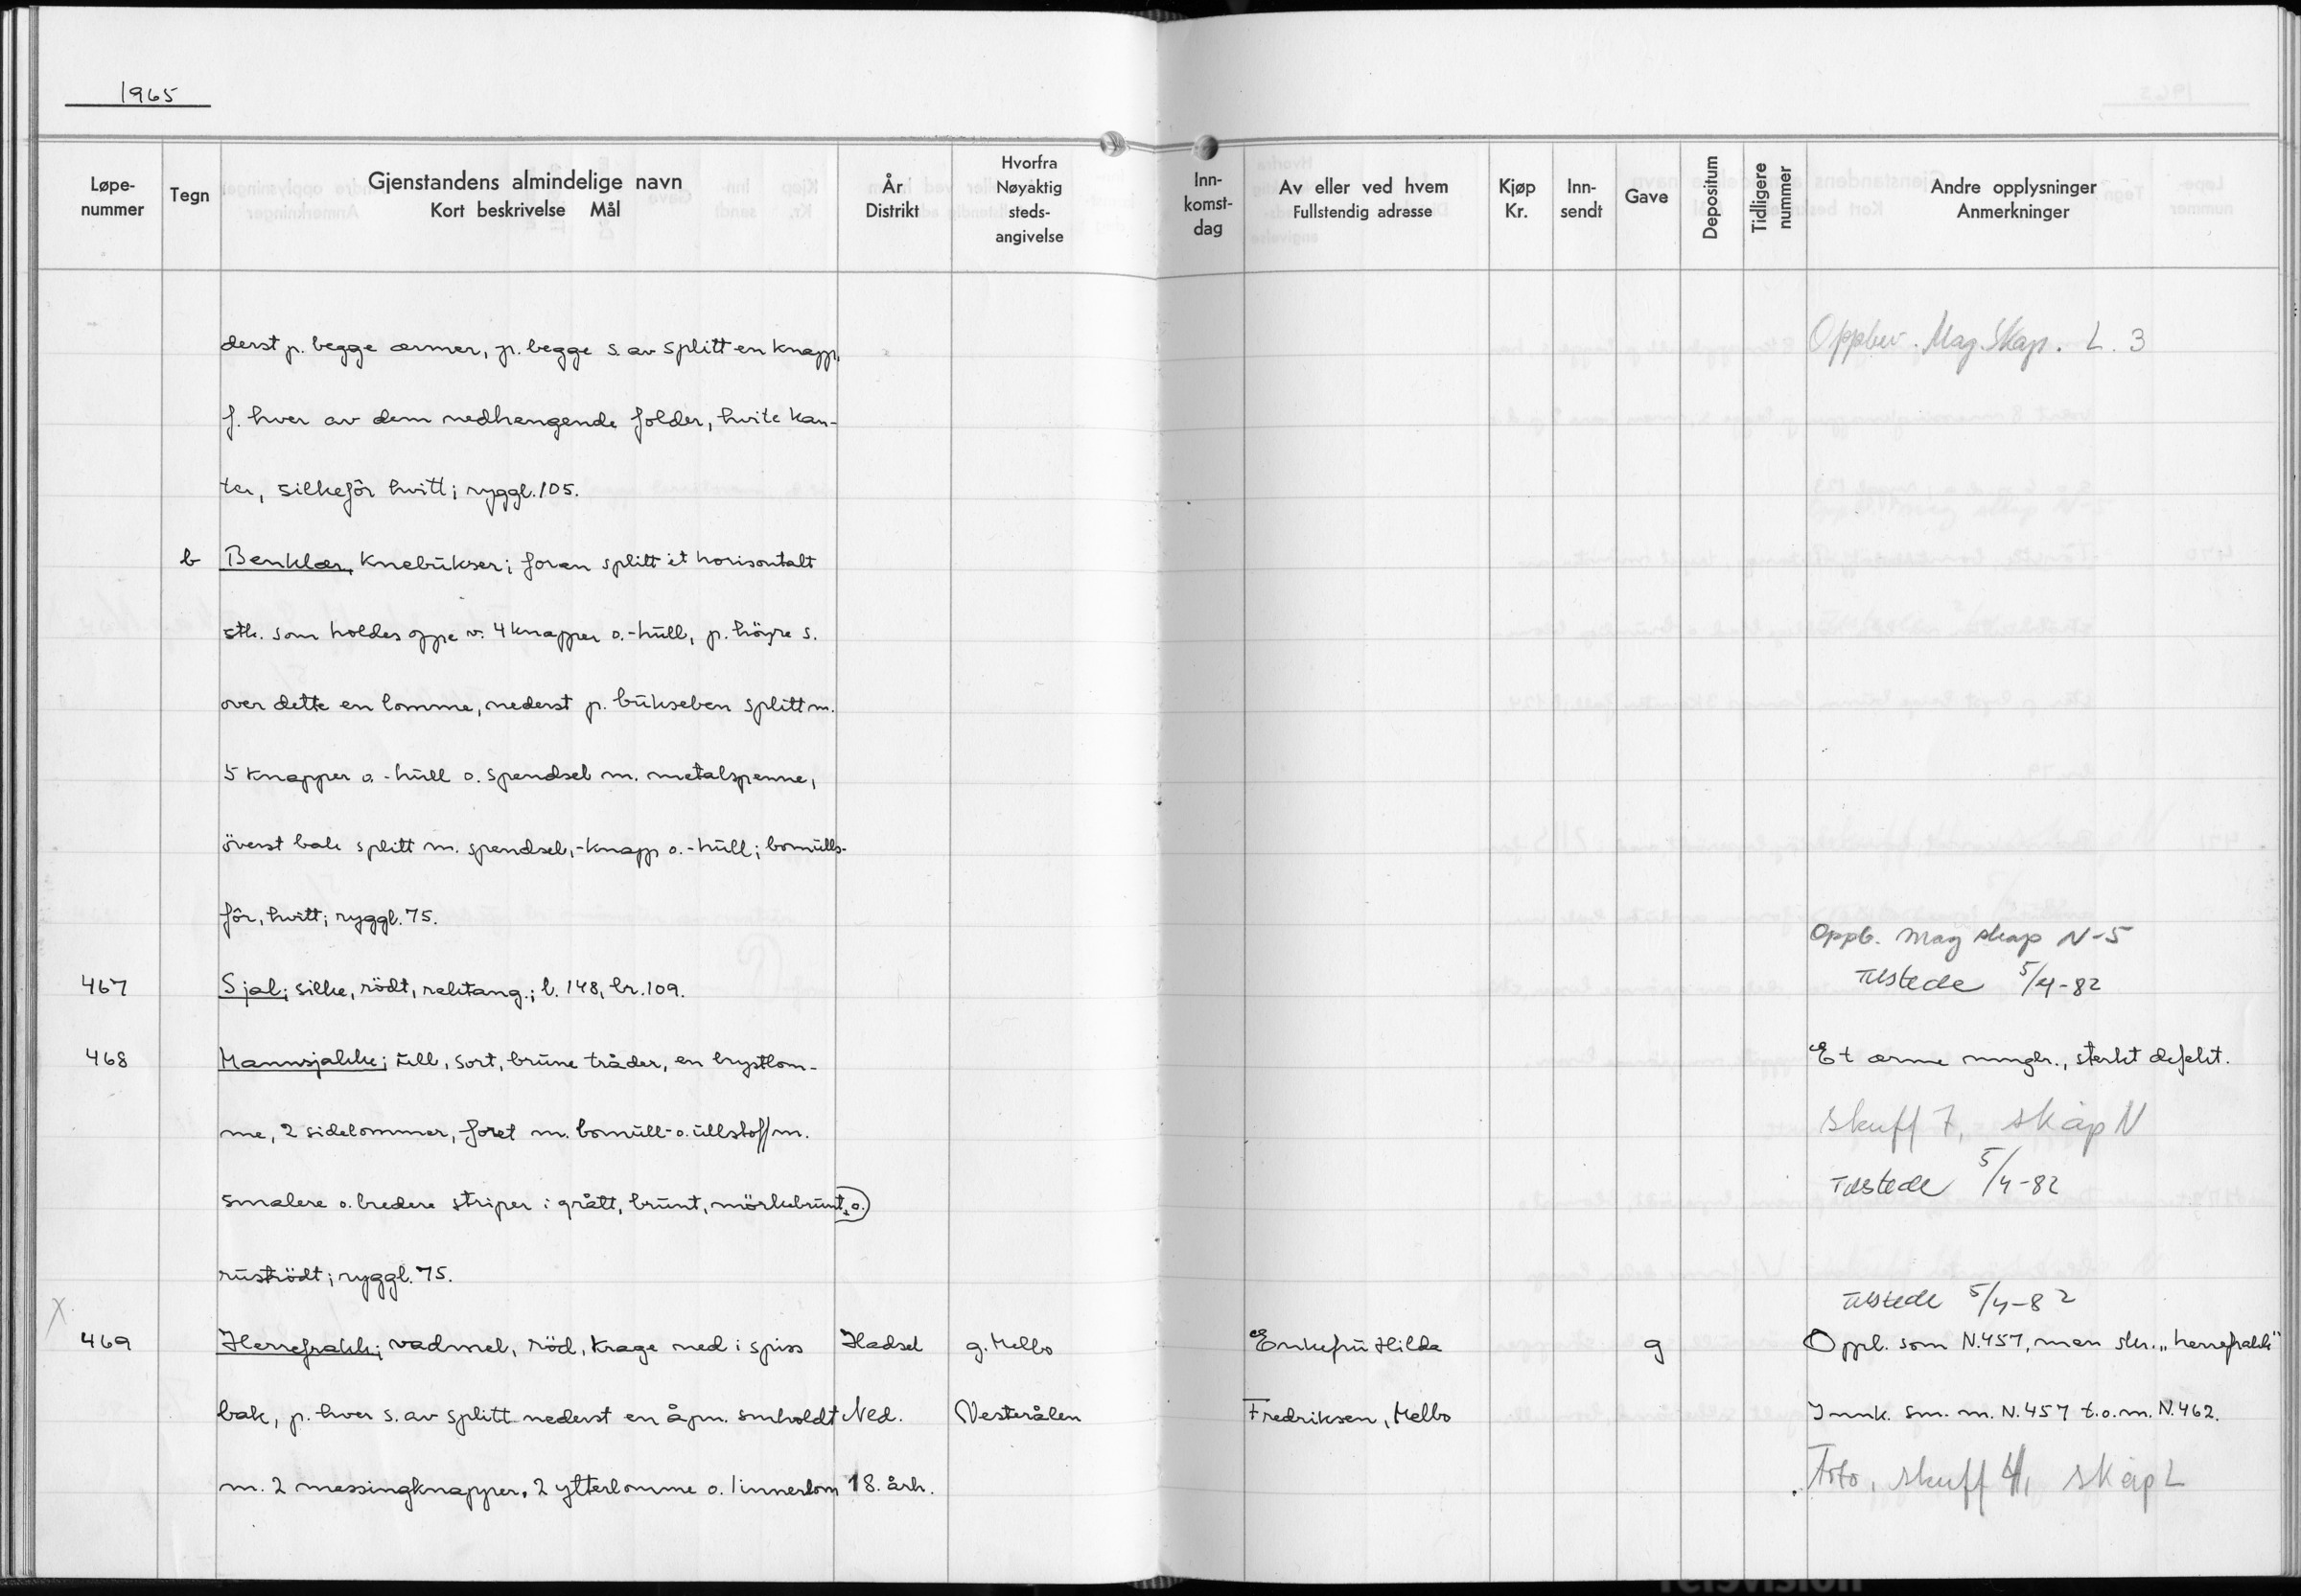 1965
Løpe-
nummer
Tegn
Gjenstandens almindelige navn
Kort beskrivelse Mål
År
Distrikt
Hvorfra
Nøyaktig
steds-
angivelse
Inn-
komst-
dag
Av eller ved hvem
Fullstendig adresse
Kjøp
Kr.
Inn-
sendt
Gave
Depositum
Tidligere
nummer
Andre opplysninger
Anmerkninger
derst p. begge ærmer, p. begge s. av splitt en knapp,
Oppbev. Mag. Skap. L. 3
f. hver av dem nedhengende folder, hvite kan-
ter, silkefôr hvitt; ryggl. 105.
b Benklær, knebukser; foran splitt it horisontalt
stk. som holdes oppe v. 4 knapper o.-hull, p. höyre s.
over dette en lomme, nederst p. bukseben splitt m.
5 knapper o.-hull o. spendsel m. metalspenne,
överst bak splitt m. spendsel,-knapp o.-hull; bomulls-
fôr, hvitt; ryggl. 75.
Oppb. Mag skap N-5
467 Sjal; silke, rödt, rektang.; l. 148, br. 109.
Tilstede 5/4-82
468 Mannsjakke; ull, sort, brune tråder, en brystlom-
Et ærme mngl., sterkt defekt.
me, 2 sidelommer, foret m. bomull- o. ullstoff m.
Skuff 7, skap N
Tilstede 5/4-82
smalere o. bredere striper i grått, brunt, mörkebrunt, o.
ruströdt; ryggl. 75.
Tilstede 5/4-82
X
469 Herrefrakk; vadmel, röd, krage ned i spiss Hadsel g. Melbo Enkefru Hilda g Oppl. som N. 457, men skr. „herrefrakk"
bak, p. hver s. av splitt nederst en åpn. smholdt Ned. Vesterålen Fredriksen, Melbo Innk. sm. m. N. 457 t.o.m. N. 462.
m. 2 messingknapper. 2 ytterlomme o. 1 innerlom 18. årh. Foto, skuff 4, skap L